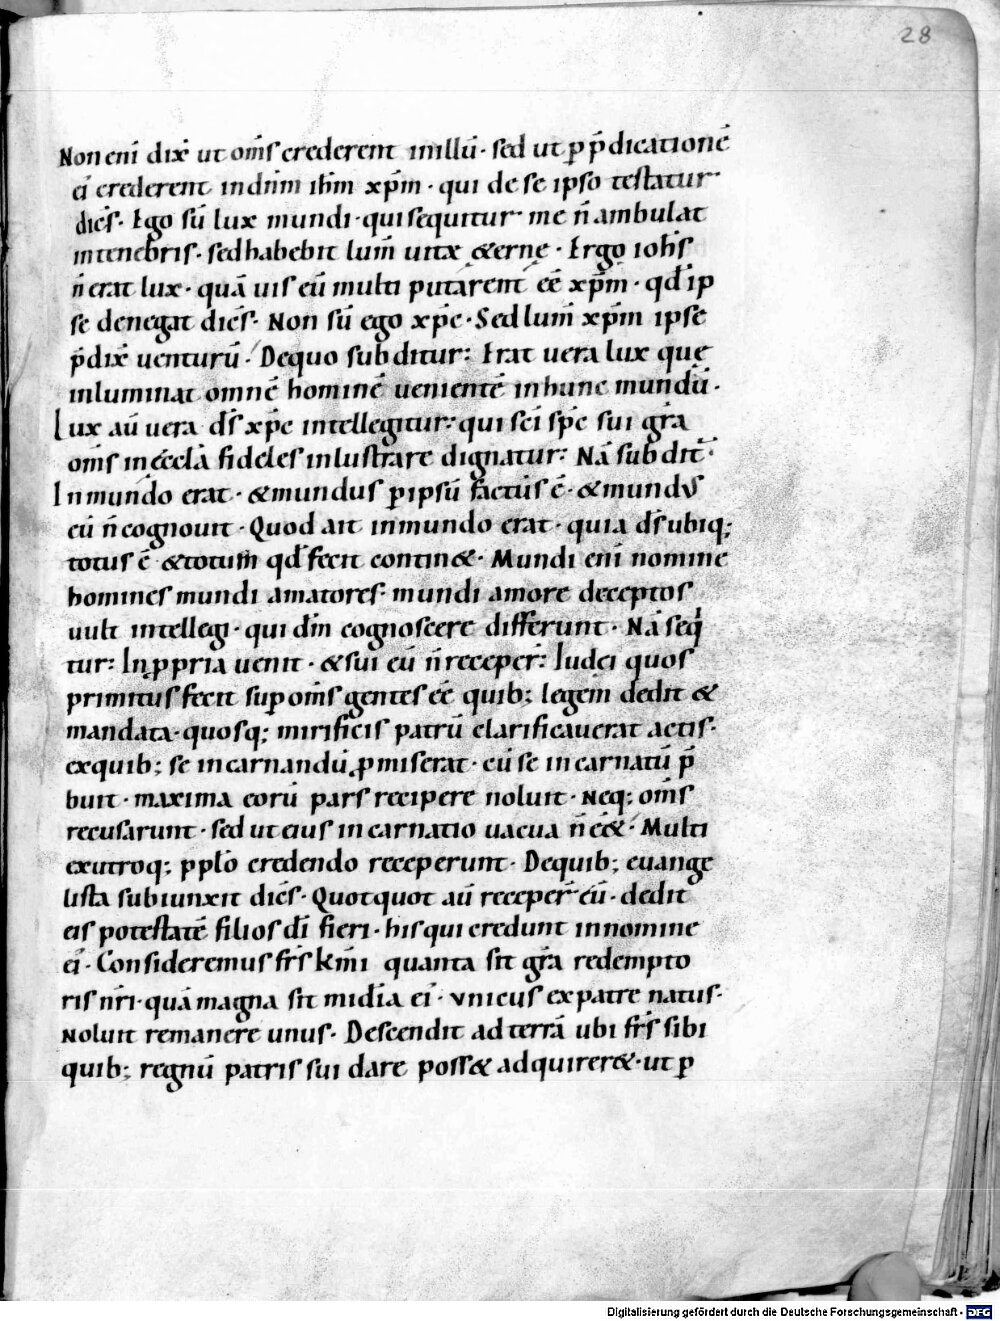 28
Non eni̅ dix̅ ut om̅s crederent inillu̅· sed ut p̲ p̅dicatione̅
ei̅ crederent indn̅m ih̅m xp̅m· qui de se ipso testatur
dice̅s· Ego su̅ lux mundi· qui sequitur me n̅ ambulat
intenebris· sed habebit lum̅ uitæ &ernę· Ergo ioh̅s
n̅ erat lux· qua̅ uis eu̅ multi putarent ee̅ xp̅m· qd̅ ip
se denegat dice̅s· Non su̅ ego xp̅c· Sed lum̅ xp̅m ipse
p̅dix̅ uenturu̅· Dequo subditur: Erat uera lux quę
inluminat omne̅ homine̅ ueniente̅ inhunc mundu̅·
Lux au̅ uera ds̅ xp̅c intellegitur: qui sc̅i sp̅c sui gr̅a
om̅s in eccl̅a fideles inlustrare dignatur: Na̅ subdit̅·
Inmundo erat· & mundus p̲ ipsu̅ factus e̅· & mundus
eu̅ n̅ cognouit· Quod ait inmundo erat· quia ds̅ ubiq;
totus e̅ & totum qd̅ fecit contin&· Mundi eni̅ nomine
homines mundi amatores· mundi amore deceptos
uult intellegi· qui dn̅m cognoscere differunt· Na̅ seq̍
tur: In p̲pria uenit· & sui eu̅ n̅ receper̅: Iudei quos
primitus fecit sup̲ om̅s gentes ee̅ quib; legem dedit &
mandata· quosq; mirificis patru̅ clarificauerat actis·
exquib; se incarnandu̅ p̲miserat· eu̅ se incarnatu̅ p̅
buit· maxima eoru̅ pars recipere noluit· Neq; om̅s
recusarunt· sed ut eius incarnatio uacua n̅ e̅e&· Multi
exutroq; ppl̅o credendo receperunt· Dequib; euange
lista subiunxit dice̅s· Quotquot au̅ receper̅ eu̅· dedit
eis potestate̅ filios di̅ fieri· his qui credunt innomine
ei̅· Consideremus fr̅s km̅i quanta sit gr̅a redempto
ris nr̅i· qua̅ magna sit mid̅ia ei̅· Vnicus ex patre natus·
Noluit remanere unus· Descendit ad terra̅ ubi fr̅s sibi
quib; regnu̅ patris sui dare poss& adquirer&· ut p̲
Digitalisierung gefördert durch die Deutsche Forschungsgemeinschaft - DFG